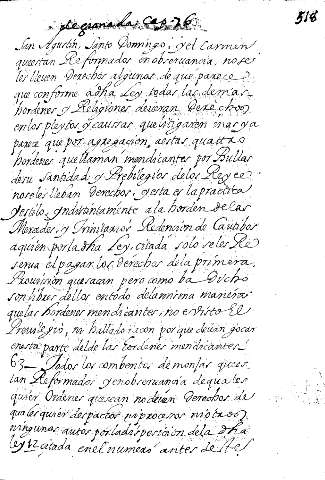 de granada Cap. 76
518
San Agustin, Santo Domingo, y el Carmen
que estan Reformados en observancia, no se
les lleven Derechos algunos de que parece
que conforme a dha Ley todas las demas
hordenes y Religiones deveran Derechos
en los pleytos y caussas que litigaren mas ya
parece que por agregacion, a estas quattro
hordenes que llaman mendicantes por Bullas
de su Santidad y Prebilegios de los Reyes
no se les lleban Derechos, y esta es la practica
y estilo, Yndistintamente a la horden de las
Mercedes, y Trinitarios Redencion de Cautibos
a quien por la dha Ley, citada solo se les Re
serva el pagar los derechos de la primera
Provission que sacan pero como ba Dicho
son libres dellos en todo de la misma manera
que las hordenes mendicantes, no e visto El
Previlegio, ni hallado racon por que devan gocar
en esta parte del de las hordenes mendicantes
63 Todos los combentos de monjas que es
tan Reformados y en observancia de quales
quier Ordenes que sean no deven Derechos de
quales quier despachos ni procesos ni otros
ningunos autos por la dsposicion de la dha
Ley 12 citada en el numero antes de Este